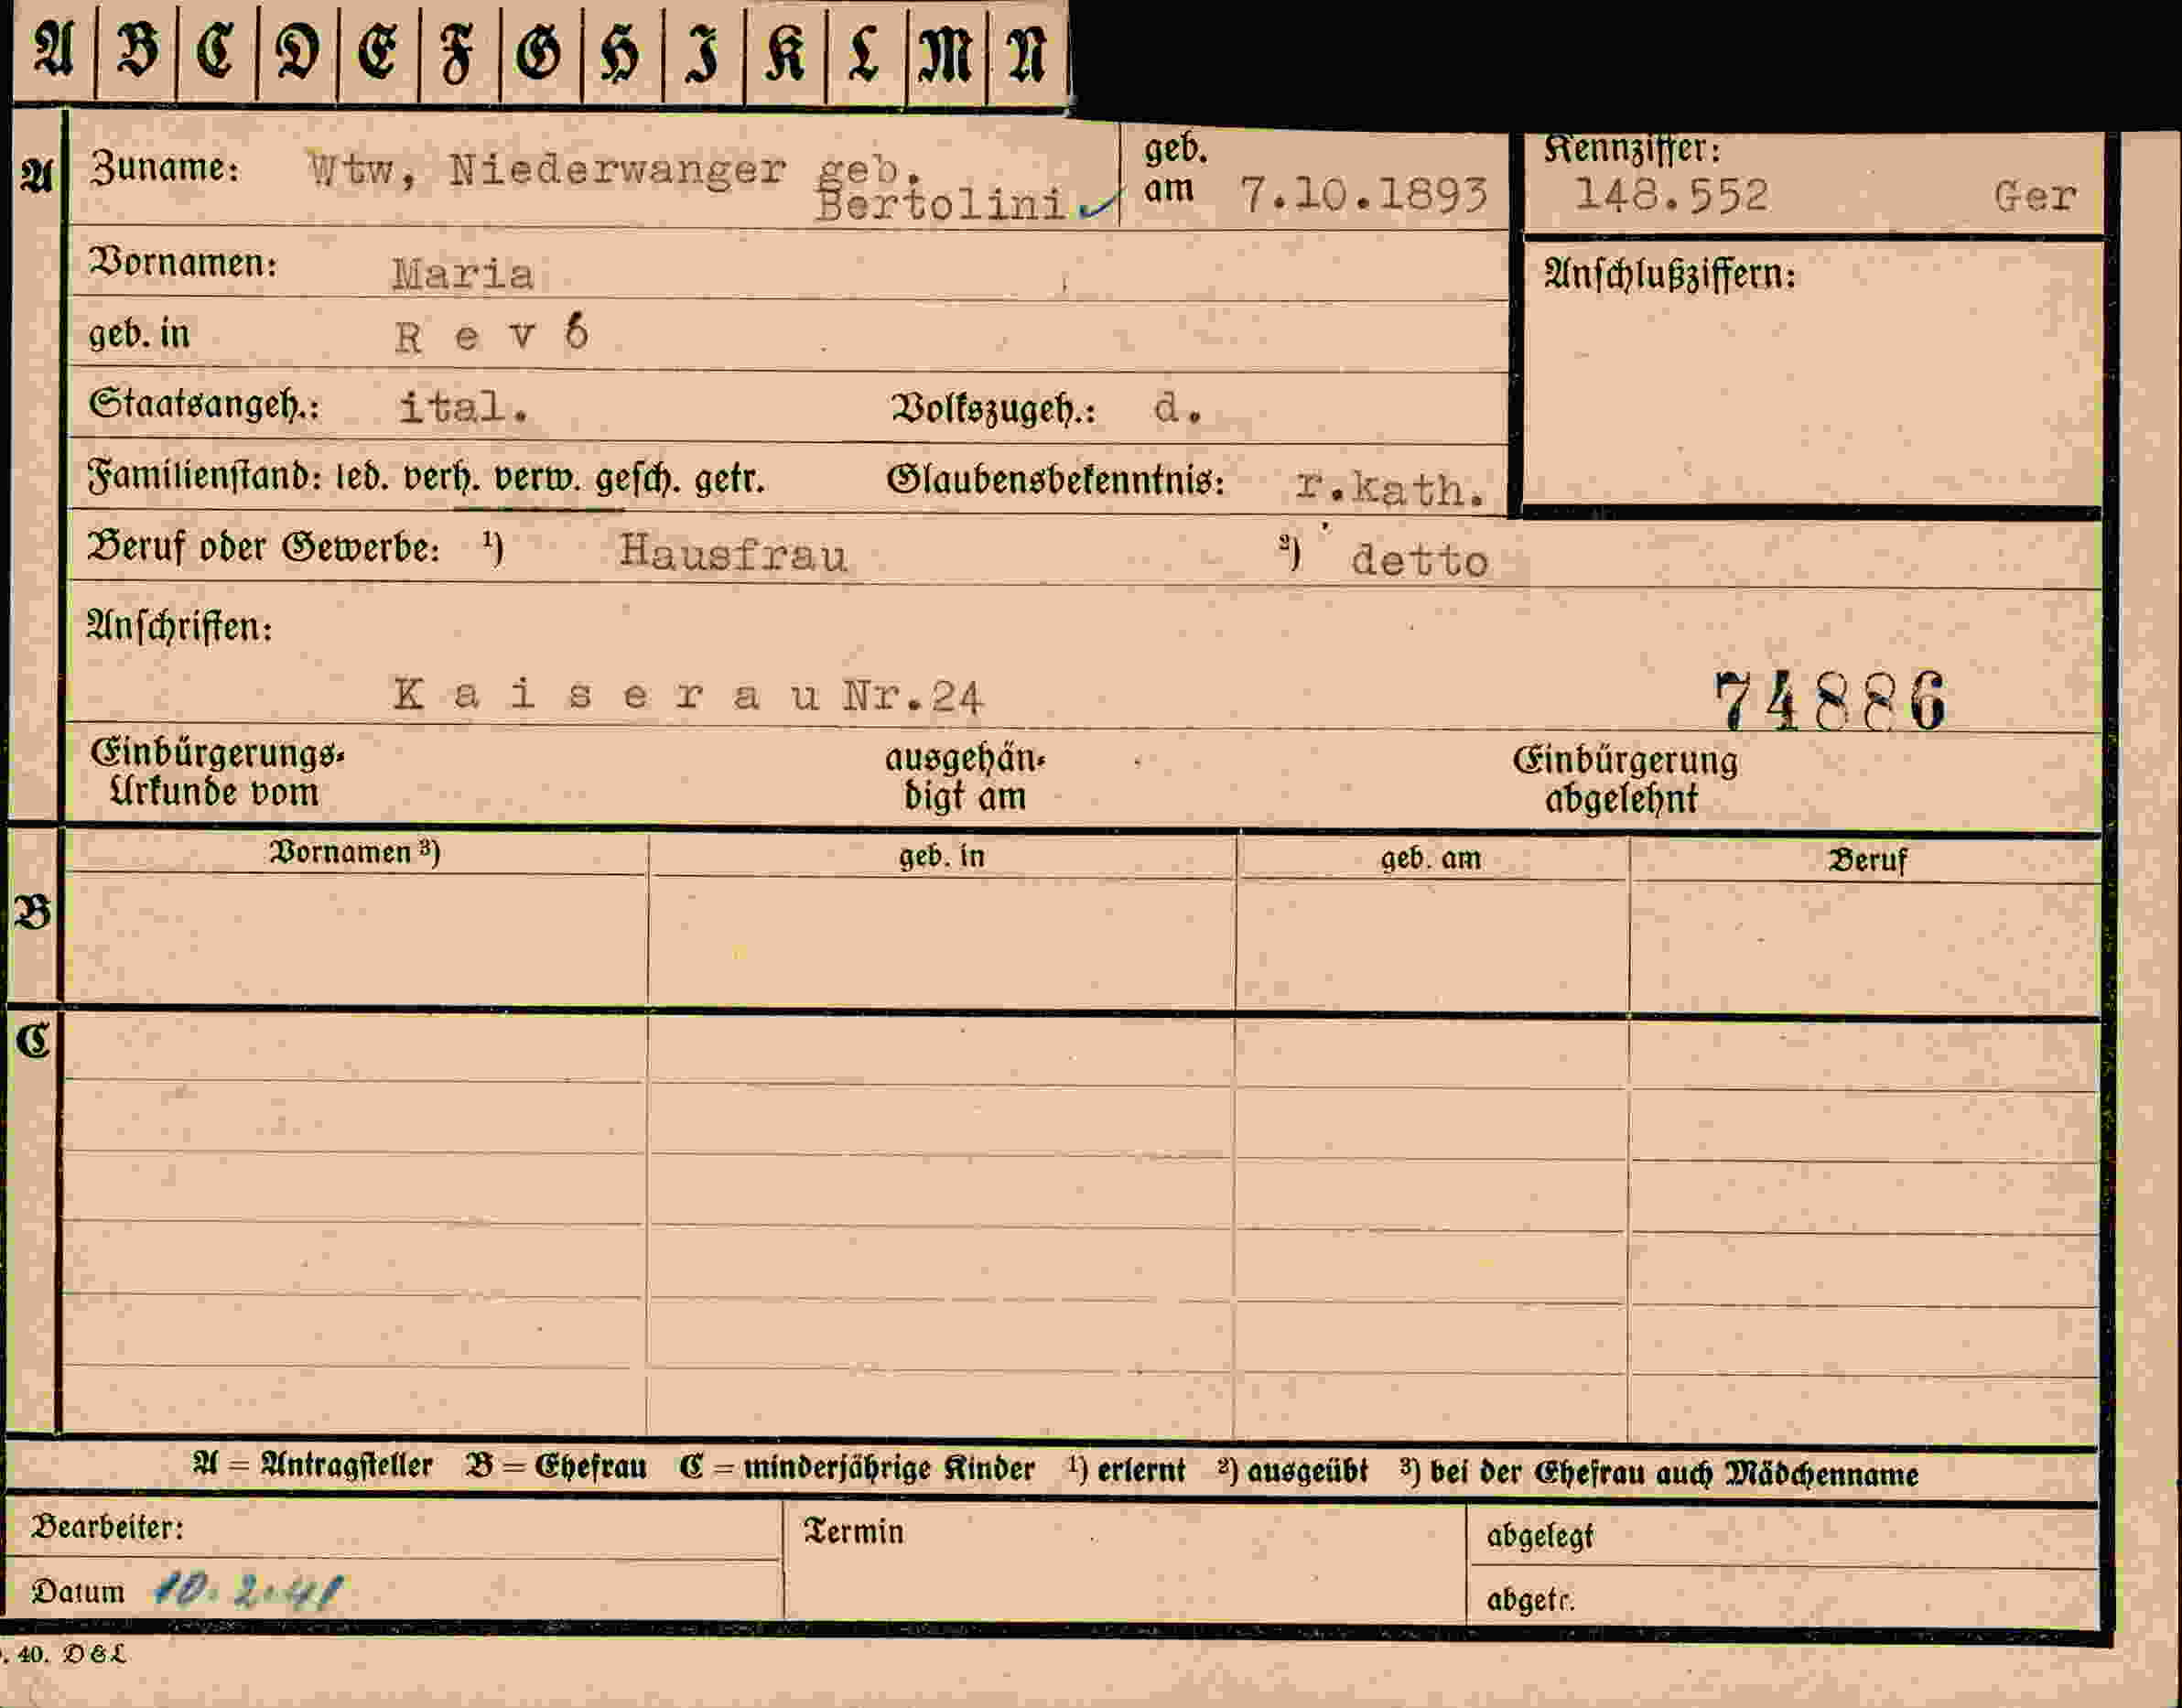 A B C D E F G H I K L M N
A Zuname: Wtw, Niederwanger geb. Bertolini geb. am 7.10.1893 Kennziffer: 148.552 Ger
Vornamen: Maria Anschlußziffern:
geb. in R e v ó
Staatsangeh.: ital. Volkszugeh.: d.
Familienstand: led. verh. verw. gesch. getr. Glaubensbekenntnis: r.kath.
Beruf oder Gewerbe: ¹) Hausfrau ²) detto
Anschriften:
K a i s e r a u Nr.24 74886
Einbürgerungs- ausgehän- Einbürgerung
Urkunde vom digt am abgelehnt
Vornamen ³) geb. in geb. am Beruf
B
C
A = Antragsteller B = Ehefrau C = minderjährige Kinder ¹) erlernt ²) ausgeübt ³) bei der Ehefrau auch Mädchenname
Bearbeiter: Termin abgelegt
Datum 10.2.41 abgetr.
. 40. D & L